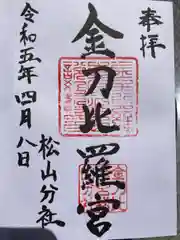 奉拝
金刀比羅宮
松山分社
令和五年四月八日